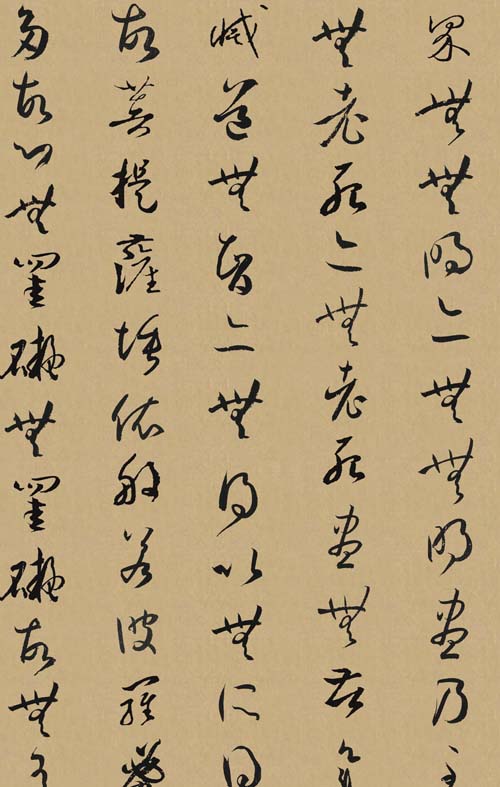 界無無明亦無無明盡乃至
無老死亦無老死盡無苦集
滅道無智亦無得以無所得
故菩提薩埵依般若波羅蜜
多故心無罣礙無罣礙故無有